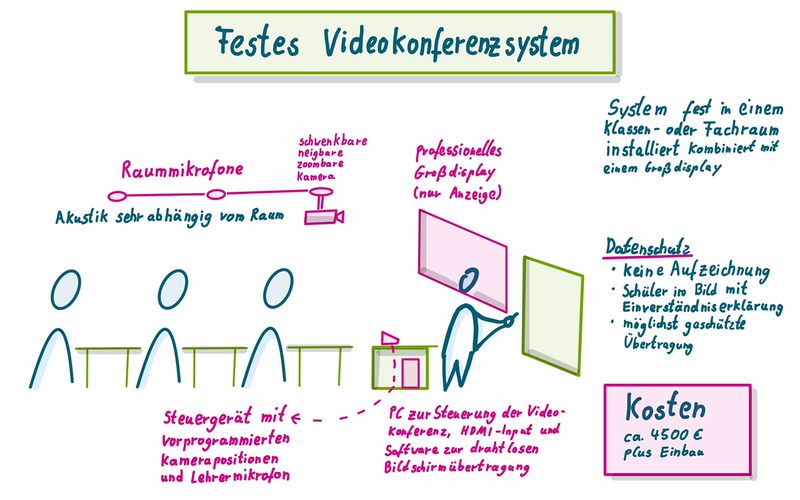 Festes Videokonferenzsystem
System fest in einem
Klassen- oder Fachraum
installiert kombiniert mit
einem Großdisplay
schwenkbare
neigbare
zoombare
Kamera
Raummikrofone
Akustik sehr abhängig vom Raum
professionelles
Großdisplay
(nur Anzeige)
Datenschutz
• keine Aufzeichnung
• Schüler im Bild mit
Einverständniserklärung
• möglichst geschützte
Übertragung
Steuergerät mit
vorprogrammierten
Kamerapositionen
und Lehrermikrofon
PC zur Steuerung der Video-
Konferenz, HDMI-Input und
Software zur drahtlosen
Bildschirmübertragung
Kosten
ca. 4500 €
plus Einbau